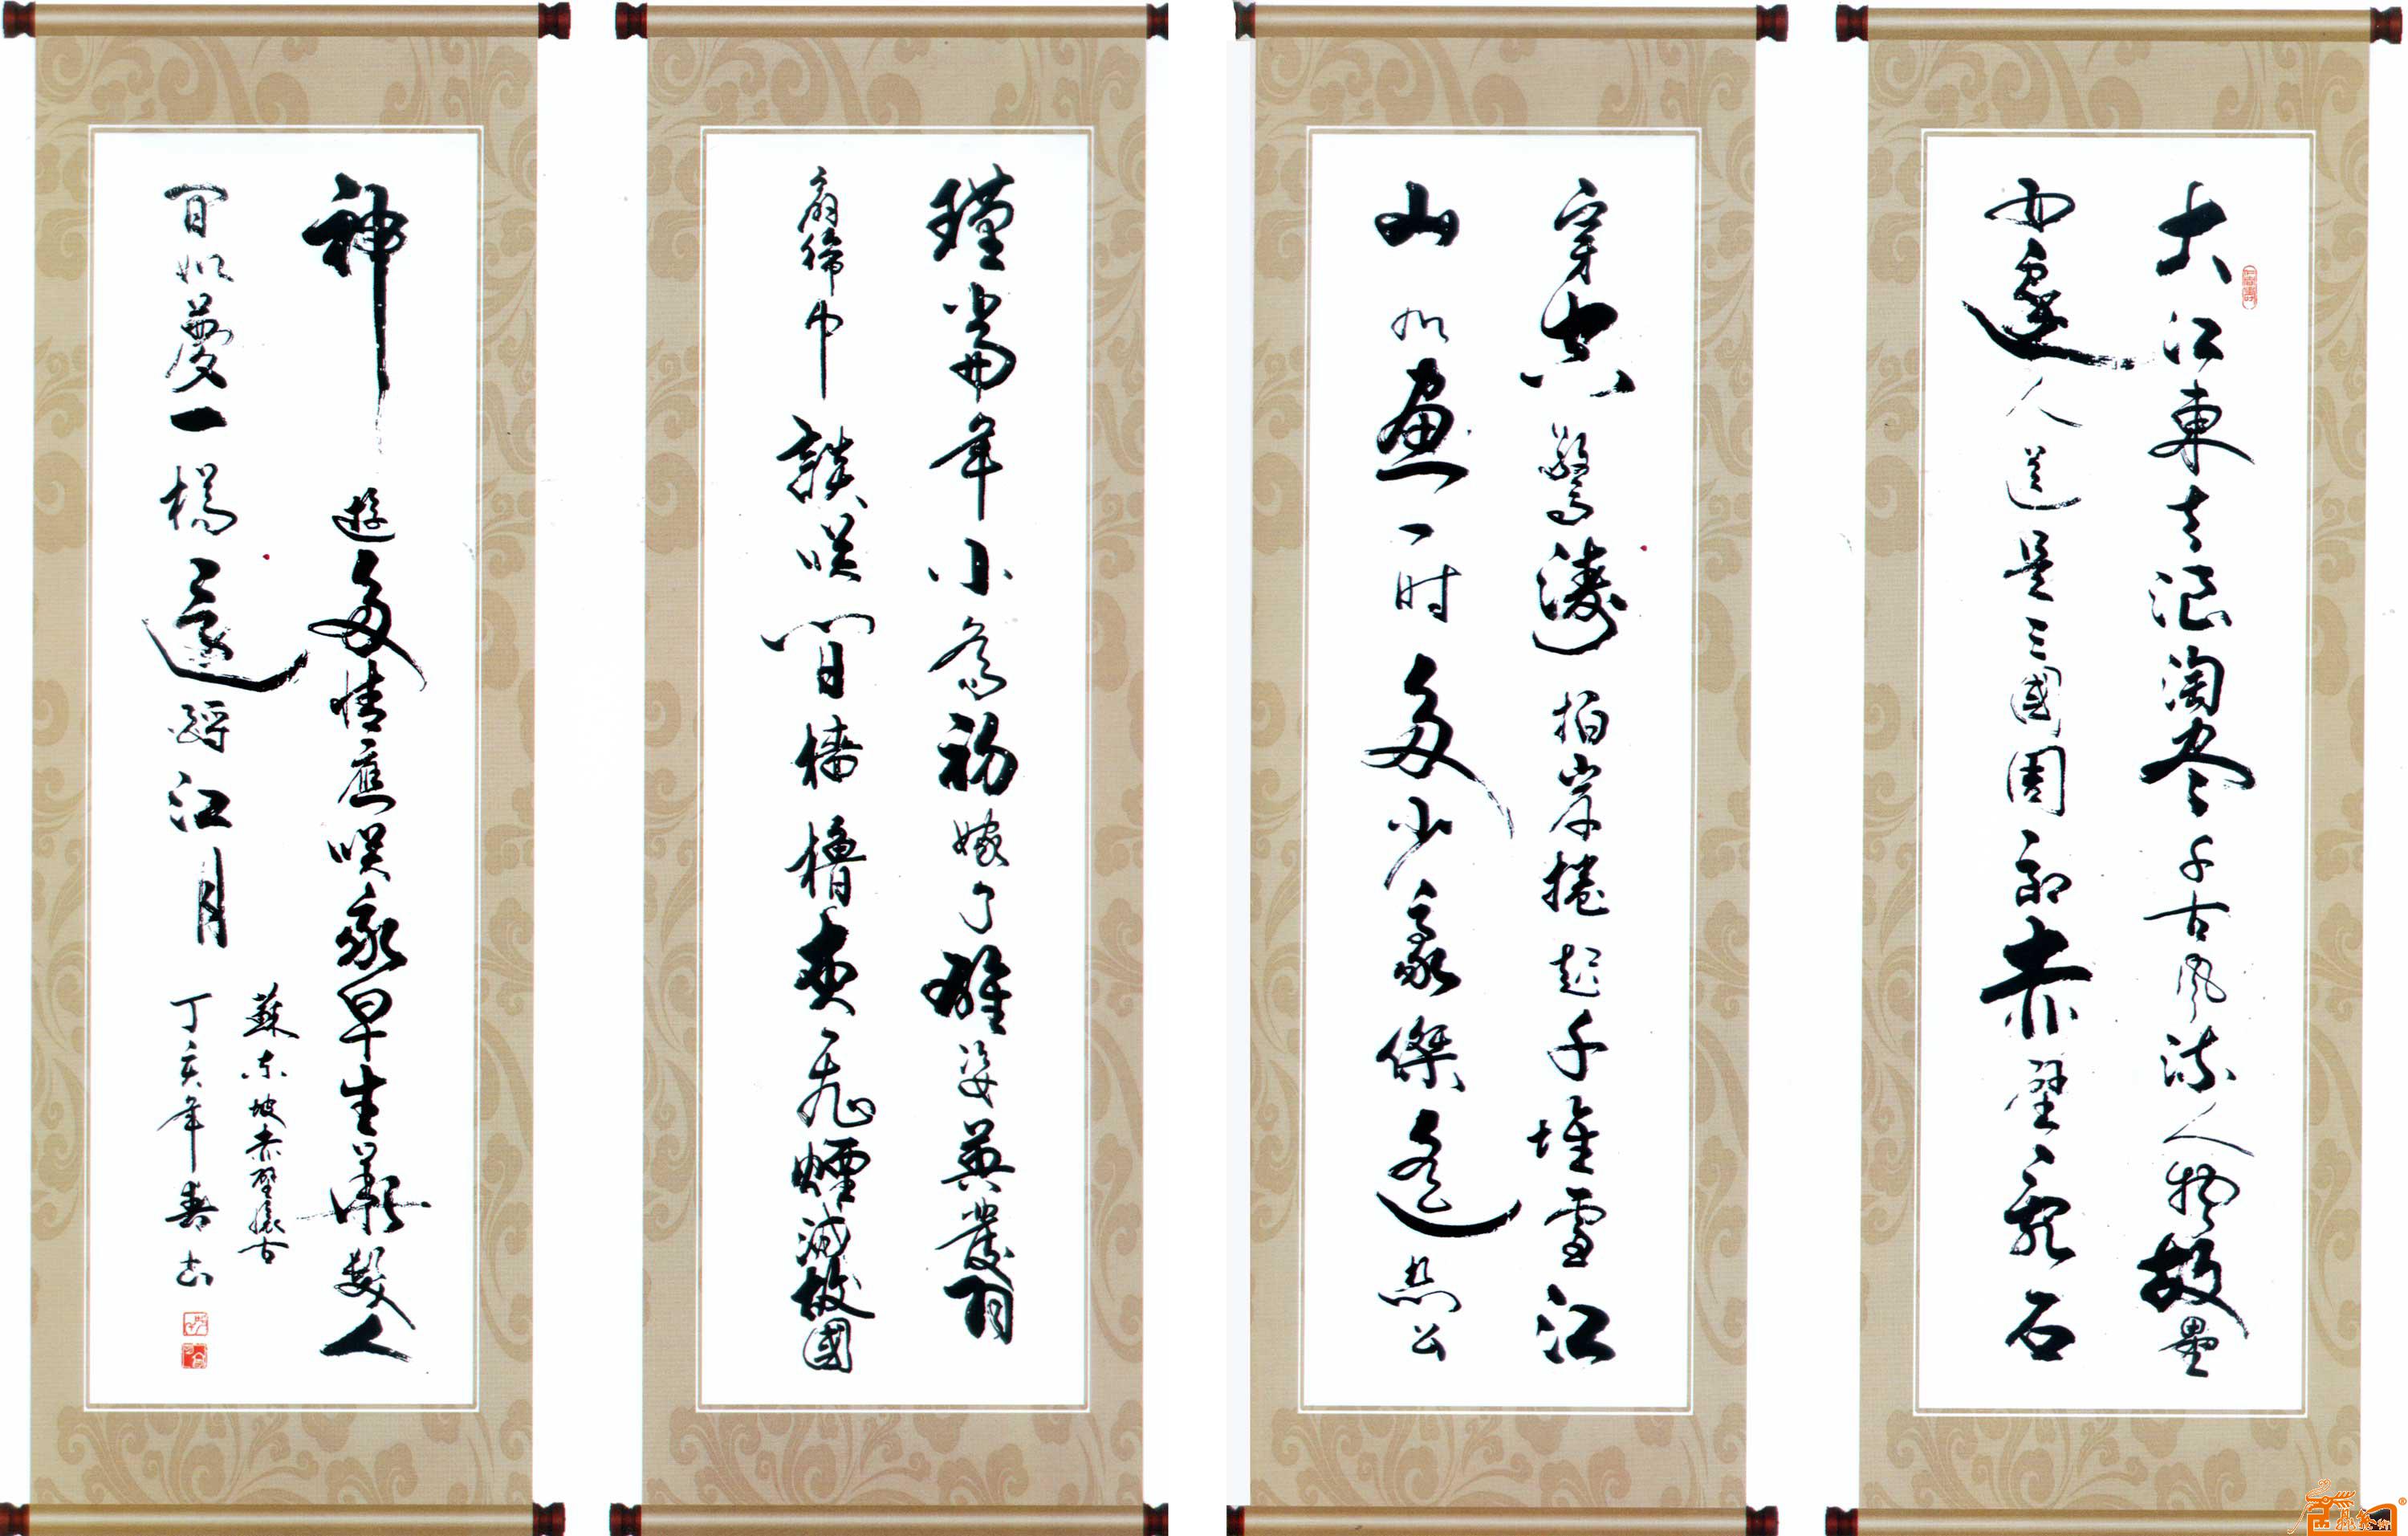 大江東去浪淘尽千古風流人物故壘
西邊人道是三國周郎赤壁乱石
穿空驚濤拍岸捲起千堆雪江
山如画一时多少豪傑遙想公
瑾當年小喬初嫁了雄姿英發羽
扇綸巾談笑間檣櫓灰飛煙滅故國
神遊多情應笑我早生華髮人
間如夢一樽還酹江月
蘇东坡赤壁懷古
丁亥年春书